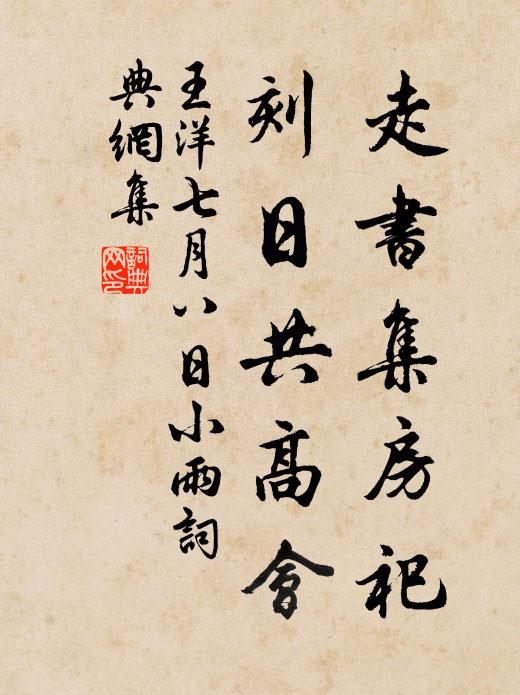 走書集房祀
刻日共高會
王洋七月八日小雨詞
典網集
詞典網印